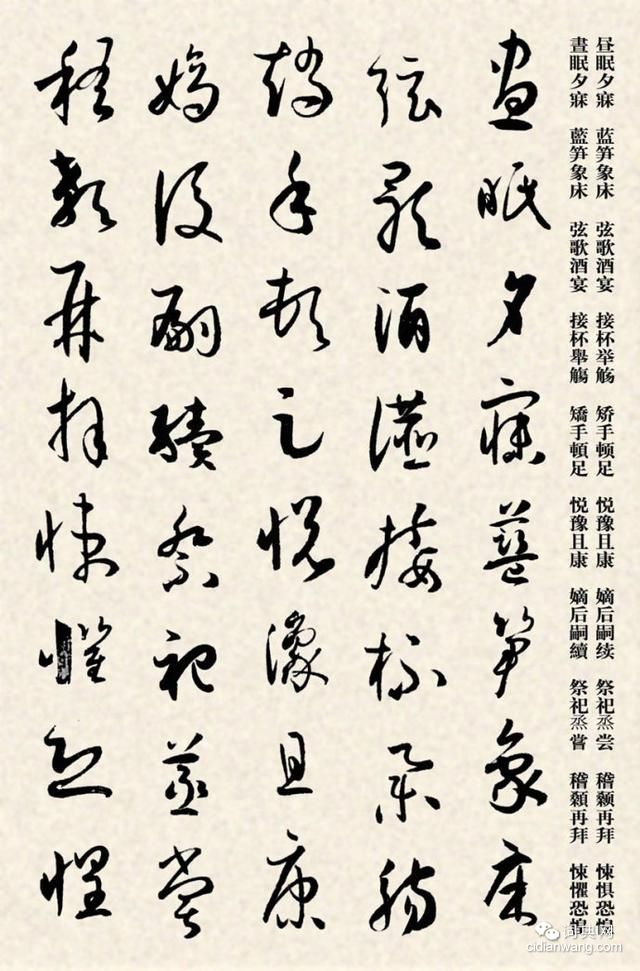 昼眠夕寐 蓝笋象床 弦歌酒宴 接杯举觞 矫手顿足 悦豫且康 嫡后嗣续 祭祀烝尝 稽颡再拜 悚惧恐惶
晝眠夕寐 藍笋象床 弦歌酒宴 接杯舉觴 矯手頓足 悦豫且康 嫡后嗣續 祭祀烝嘗 稽顙再拜 悚懼恐惶
晝眠夕寐藍笋象床
絃歌酒讌接杯舉觴
矯手頓足悦豫且康
嫡後嗣續祭祀蒸嘗
稽顙再拜悚懼恐惶
词典网
cidianwang.com